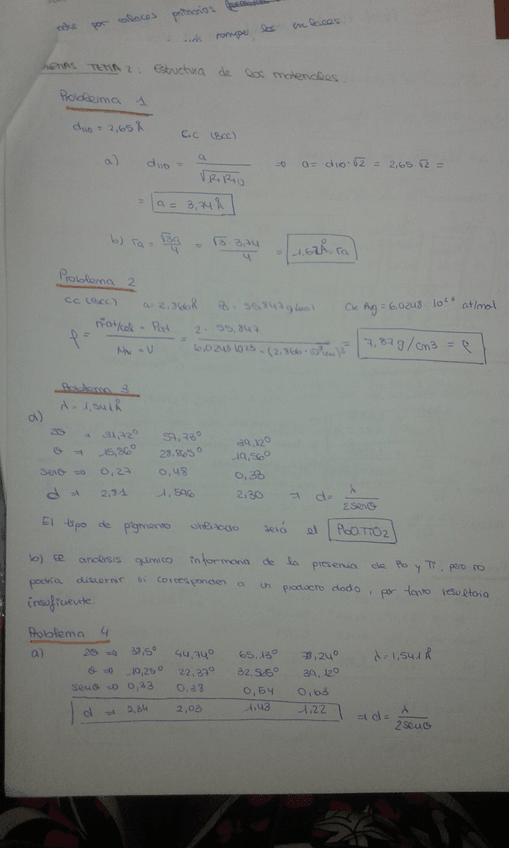 por enlaces primarios
romper los enlaces
TEMA 2: Estructura de los materiales.
Problema 1
d110 = 2,65 Å C.C (BCC)
a) d110 = a / √(1+1+0) ⇒ a = d110·√2 = 2,65·√2 =
= a = 3,74 Å
b) ra = √3a/4 = √3·3,74/4 = 1,62 Å = ra
Problema 2
CC (BCC) a = 2,866 Å 55,847 g/mol Cte Avg = 6,0248·10²³ at/mol
ρ = nºat/celd · Pat / NAv · V = 2 · 55,847 / 6,0248·10²³ · (2,866·10⁻⁸cm)³ = 7,87 g/cm3 = ρ
Problema 3
λ = 1,541 Å
a)
2θ ⇒ 31,72º 57,73º 39,12º
θ ⇒ 15,86º 28,865º 19,56º
senθ ⇒ 0,27 0,48 0,33
d ⇒ 2,81 1,596 2,30 ⇒ d = λ / 2senθ
El tipo de pigmento utilizado será el PbO.TiO2
b) El análisis químico informaría de la presencia de Pb y Ti, pero no
podría discernir si corresponden a un producto dado, por tanto resultaría
insuficiente.
Problema 4
a) 2θ ⇒ 38,5º 44,74º 65,13º 78,24º λ = 1,541 Å
θ ⇒ 19,25º 22,37º 32,565º 39,12º
senθ ⇒ 0,33 0,38 0,54 0,63
d ⇒ 2,34 2,03 1,43 1,22 ⇒ d = λ / 2senθ